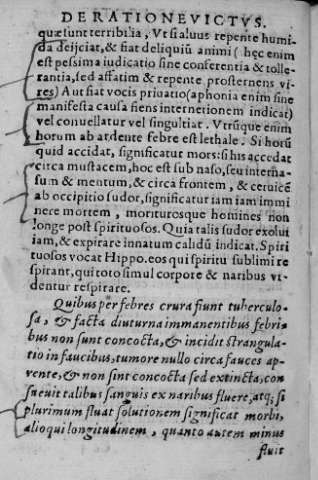 DE RATIONE VICTVS.
quæ sunt terribilia, Vt si aluus repente humi-
da deijciat, & fiat deliquiũ animi (hęc enim
est pessima iudicatio sine conferentia & tolle-
rantia, sed affatim & repente prosternens vi-
res) Aut fiat vocis priuatio (aphonia enim sine
manifesta causa fiens internetionem indicat)
vel conuellatur vel singultiat. Vtrũque enim
horum ab ardente febre est lethale. Si horũ
quid accidat, significatur mors: si his accedat
circa mustacem, hoc est sub naso, seu interna-
sum & mentum, & circa frontem, & ceruicẽ
ab occipitio sudor, significatur iam iam immi
nere mortem, moriturosque homines non
longe post spirituosos. Quia talis sudor exolui
iam, & expirare innatum calidũ indicat. Spiri
tuosos vocat Hippo. eos qui spiritu sublimi re
spirant, qui toto simul corpore & naribus vi-
dentur respirare.
Quibus per febres crura fiunt tuberculo-
sa, & facta diuturna immanentibus febri-
bus non sunt concocta, & incidit strangula-
tio in faucibus, tumore nullo circa fauces ap-
parente, & non sint concocta sed extincta, con
sueuit talibus sanguis ex naribus fluere, atq; si
plurimum fluat solutionem significat morbi,
alioqui longitudinem, quanto autem minus
fluit